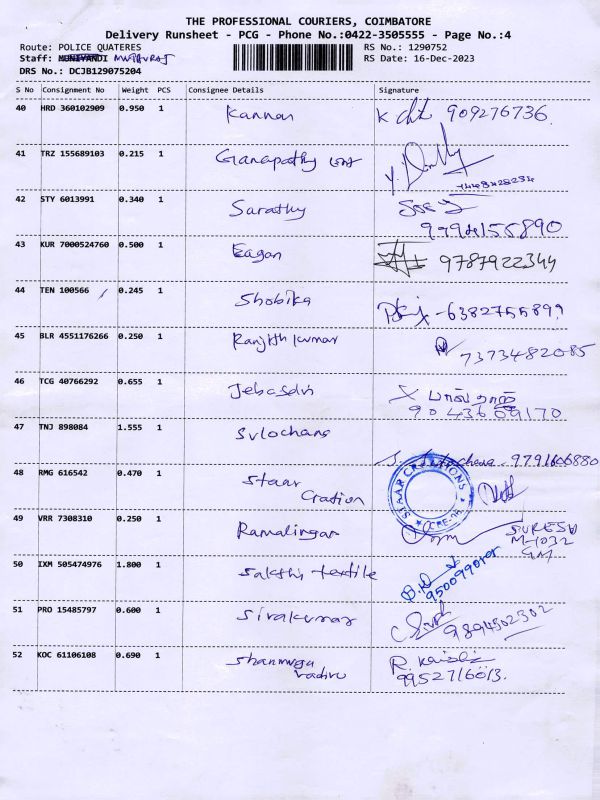 THE PROFESSIONAL COURIERS, COIMBATORE
Delivery Runsheet - PCG - Phone No.:0422-3505555 - Page No.:4
Route: POLICE QUATERES RS No.: 1290752
Staff: MUNIYANDI MUTHURAJ RS Date: 16-Dec-2023
DRS No.: DCJB129075204
S No Consignment No Weight PCS Consignee Details Signature
40 HRD 360102909 0.950 1 Kannan K 909276736
41 TRZ 155689103 0.215 1 Ganapathy
42 STY 6013991 0.340 1 Sarathy
9794155890
43 KUR 7000524760 0.500 1 Eagan 9787922344
44 TEN 100566 0.245 1 Shobika -6382755899
45 BLR 4551176266 0.250 1 Ranjith kumar 7373482085
46 TCG 40766292 0.655 1 Jebasdin
9043609170
47 TNJ 898084 1.555 1 Sulochana
S. Sulochana 9791606880
48 RMG 616542 0.470 1 Staar
Cration
STAAR CREATIONS
CBE-18
49 VRR 7308310 0.250 1 Ramalingan SURESH
M-1032
GM
50 IXM 505474976 1.800 1 Sakthi textile
9500990101
51 PRO 15485797 0.600 1 Sivakumar 9894502302
52 KOC 61106108 0.690 1 Shanmuga
vadivu
R.
9952716013.